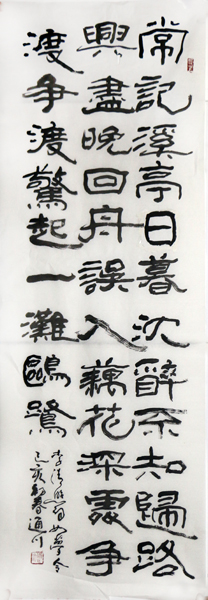 常記溪亭日暮沈醉不知歸路
興盡晚回舟誤入藕花深處爭
渡爭渡驚起一灘鷗鷺
李清照詞如夢令
己亥初春通川